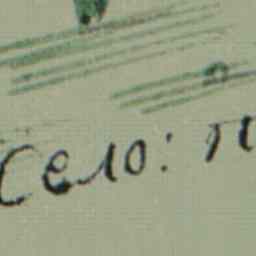 Село: П